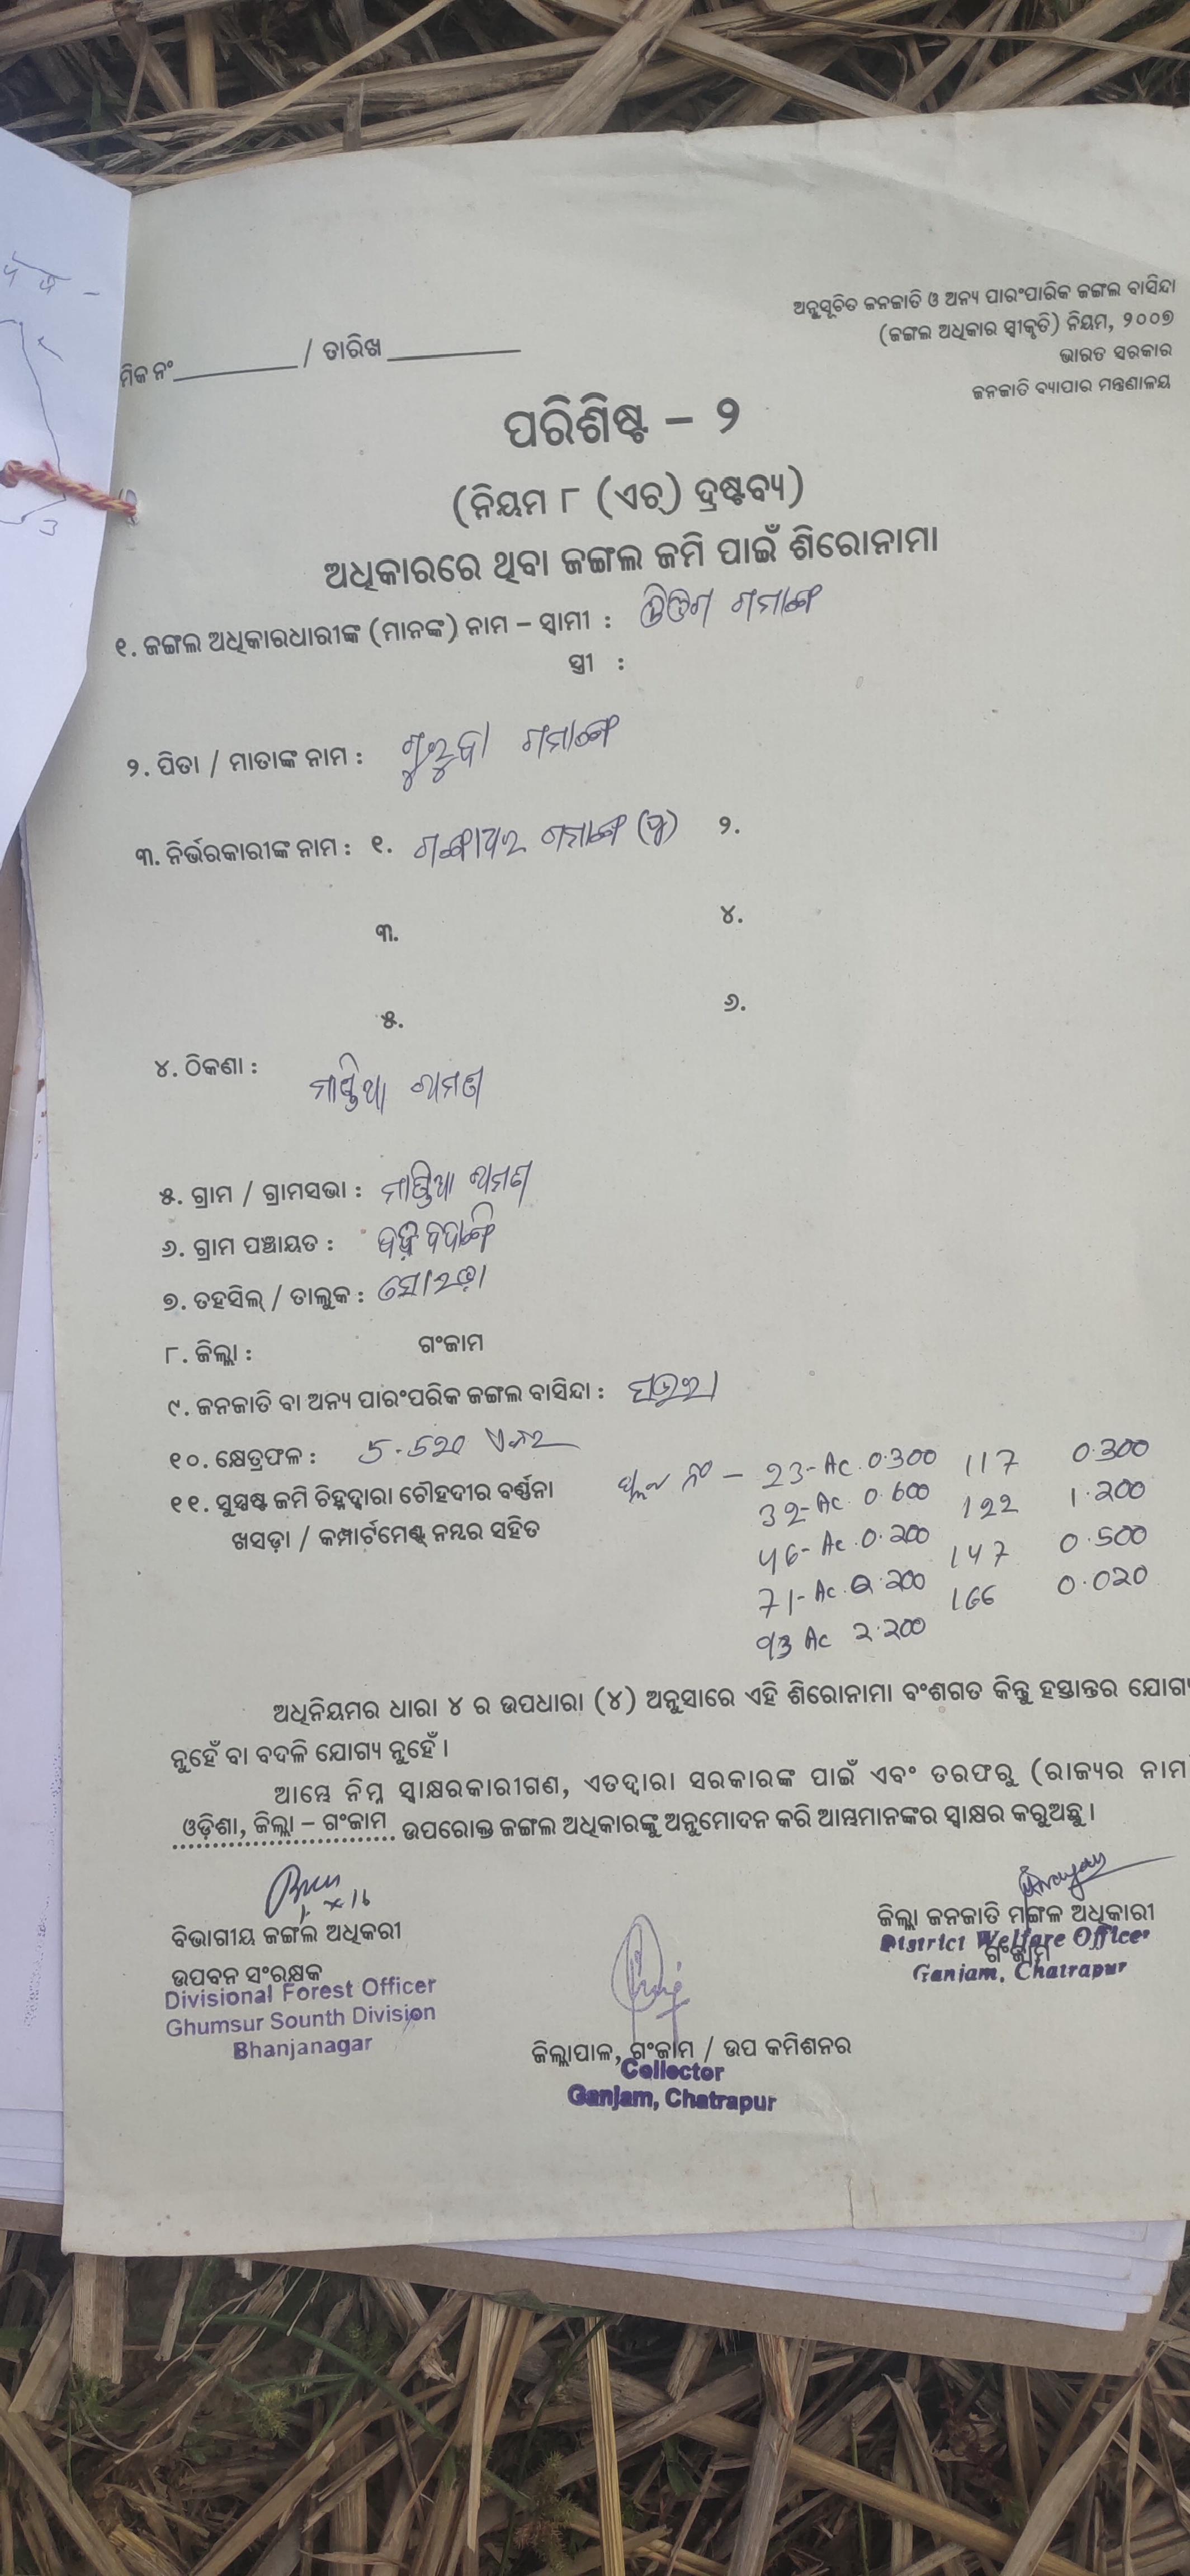 ଅନୁସୂଚିତ ଜନଜାତି ଓ ଅନ୍ୟ ପାରଂପାରିକ ଜଙ୍ଗଲ ବାସିନ୍ଦା
(ଜଙ୍ଗଲ ଅଧିକାର ସ୍ୱୀକୃତି) ନିୟମ, ୨୦୦୭
ଭାରତ ସରକାର
ଜନଜାତି ବ୍ୟାପାର ମନ୍ତ୍ରଣାଳୟ
ମିକ ନଂ / ତାରିଖ
ପରିଶିଷ୍ଟ – ୨
(ନିୟମ ୮ (ଏଚ୍) ଦ୍ରଷ୍ଟବ୍ୟ)
ଅଧିକାରରେ ଥିବା ଜଙ୍ଗଲ ଜମି ପାଇଁ ଶିରୋନାମା
୧. ଜଙ୍ଗଲ ଅଧିକାରଧାରୀଙ୍କ (ମାନଙ୍କ) ନାମ – ସ୍ୱାମୀ : ଗମାଙ୍ଗ
ସ୍ତ୍ରୀ :
୨. ପିତା / ମାତାଙ୍କ ନାମ : ଗମାଙ୍ଗ
୩. ନିର୍ଭରକାରୀଙ୍କ ନାମ : ୧. ଗମାଙ୍ଗ (ପୁ) ୨.
୩. ୪.
୫. ୬.
୪. ଠିକଣା :
୫. ଗ୍ରାମ / ଗ୍ରାମସଭା :
୬. ଗ୍ରାମ ପଞ୍ଚାୟତ :
୭. ତହସିଲ୍ / ତାଲୁକ : ସୋରଡ଼ା
୮. ଜିଲ୍ଲା : ଗଂଜାମ
୯. ଜନଜାତି ବା ଅନ୍ୟ ପାରଂପରିକ ଜଙ୍ଗଲ ବାସିନ୍ଦା :
୧୦. କ୍ଷେତ୍ରଫଳ : 5.520 ଏକର
୧୧. ସୁସ୍ପଷ୍ଟ ଜମି ଚିହ୍ନଦ୍ୱାରା ଚୌହଦୀର ବର୍ଣ୍ଣନା ପ୍ଲଟ ନଂ – 23-Ac. 0.300 117 0.300
ଖସଡ଼ା / କମ୍ପାର୍ଟମେଣ୍ଟ୍ ନମ୍ବର ସହିତ 32-Ac. 0.600 122 1.200
46-Ac. 0.200 147 0.500
71-Ac. 0.200 166 0.020
93 Ac 2.200
ଅଧିନିୟମର ଧାରା ୪ ର ଉପଧାରା (୪) ଅନୁସାରେ ଏହି ଶିରୋନାମା ବଂଶଗତ କିନ୍ତୁ ହସ୍ତାନ୍ତର ଯୋଗ୍ୟ
ନୁହେଁ ବା ବଦଳି ଯୋଗ୍ୟ ନୁହେଁ ।
ଆମ୍ଭେ ନିମ୍ନ ସ୍ୱାକ୍ଷରକାରୀଗଣ, ଏତଦ୍ଦ୍ୱାରା ସରକାରଙ୍କ ପାଇଁ ଏବଂ ତରଫରୁ (ରାଜ୍ୟର ନାମ
ଓଡ଼ିଶା, ଜିଲ୍ଲା – ଗଂଜାମ ଉପରୋକ୍ତ ଜଙ୍ଗଲ ଅଧିକାରଙ୍କୁ ଅନୁମୋଦନ କରି ଆମ୍ଭମାନଙ୍କର ସ୍ୱାକ୍ଷର କରୁଅଛୁ ।
ବିଭାଗୀୟ ଜଙ୍ଗଲ ଅଧିକରୀ
ଉପବନ ସଂରକ୍ଷକ
Divisional Forest Officer
Ghumsur Sounth Division
Bhanjanagar
ଜିଲ୍ଲାପାଳ, ଗଂଜାମ / ଉପ କମିଶନର
Collector
Ganjam, Chatrapur
ଜିଲ୍ଲା ଜନଜାତି ମଙ୍ଗଳ ଅଧିକାରୀ
ଗଂଜାମ
District Welfare Officer
Ganjam, Chatrapur